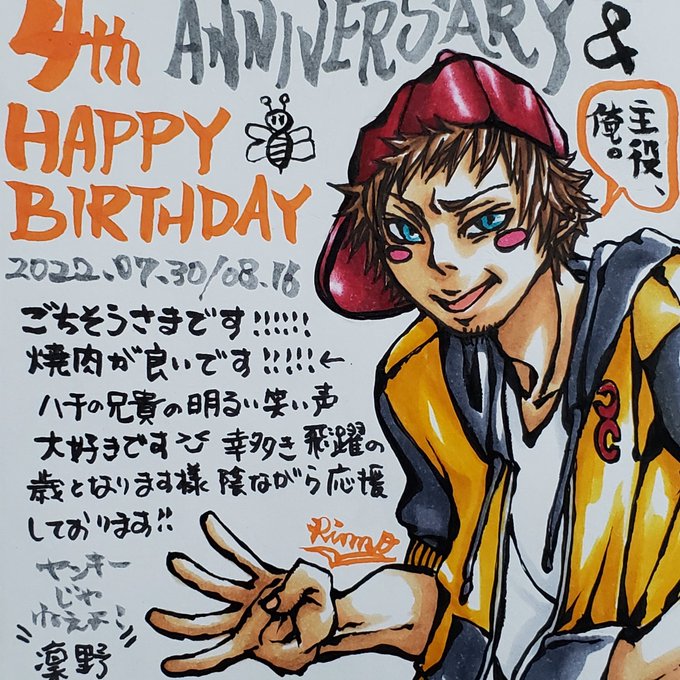 4th ANNIVERSARY &
HAPPY
BIRTHDAY
2022.07.30/08.16
主役、
俺。
ごちそうさまです!!!!!!
焼肉が良いです!!!!!←
ハチの兄貴の明るい笑い声
大好きです 幸多き飛躍の
歳となります様 陰ながら応援
しております!!
Rinno
ヤンキー
じゃ
ねえよ!
凛野
CC